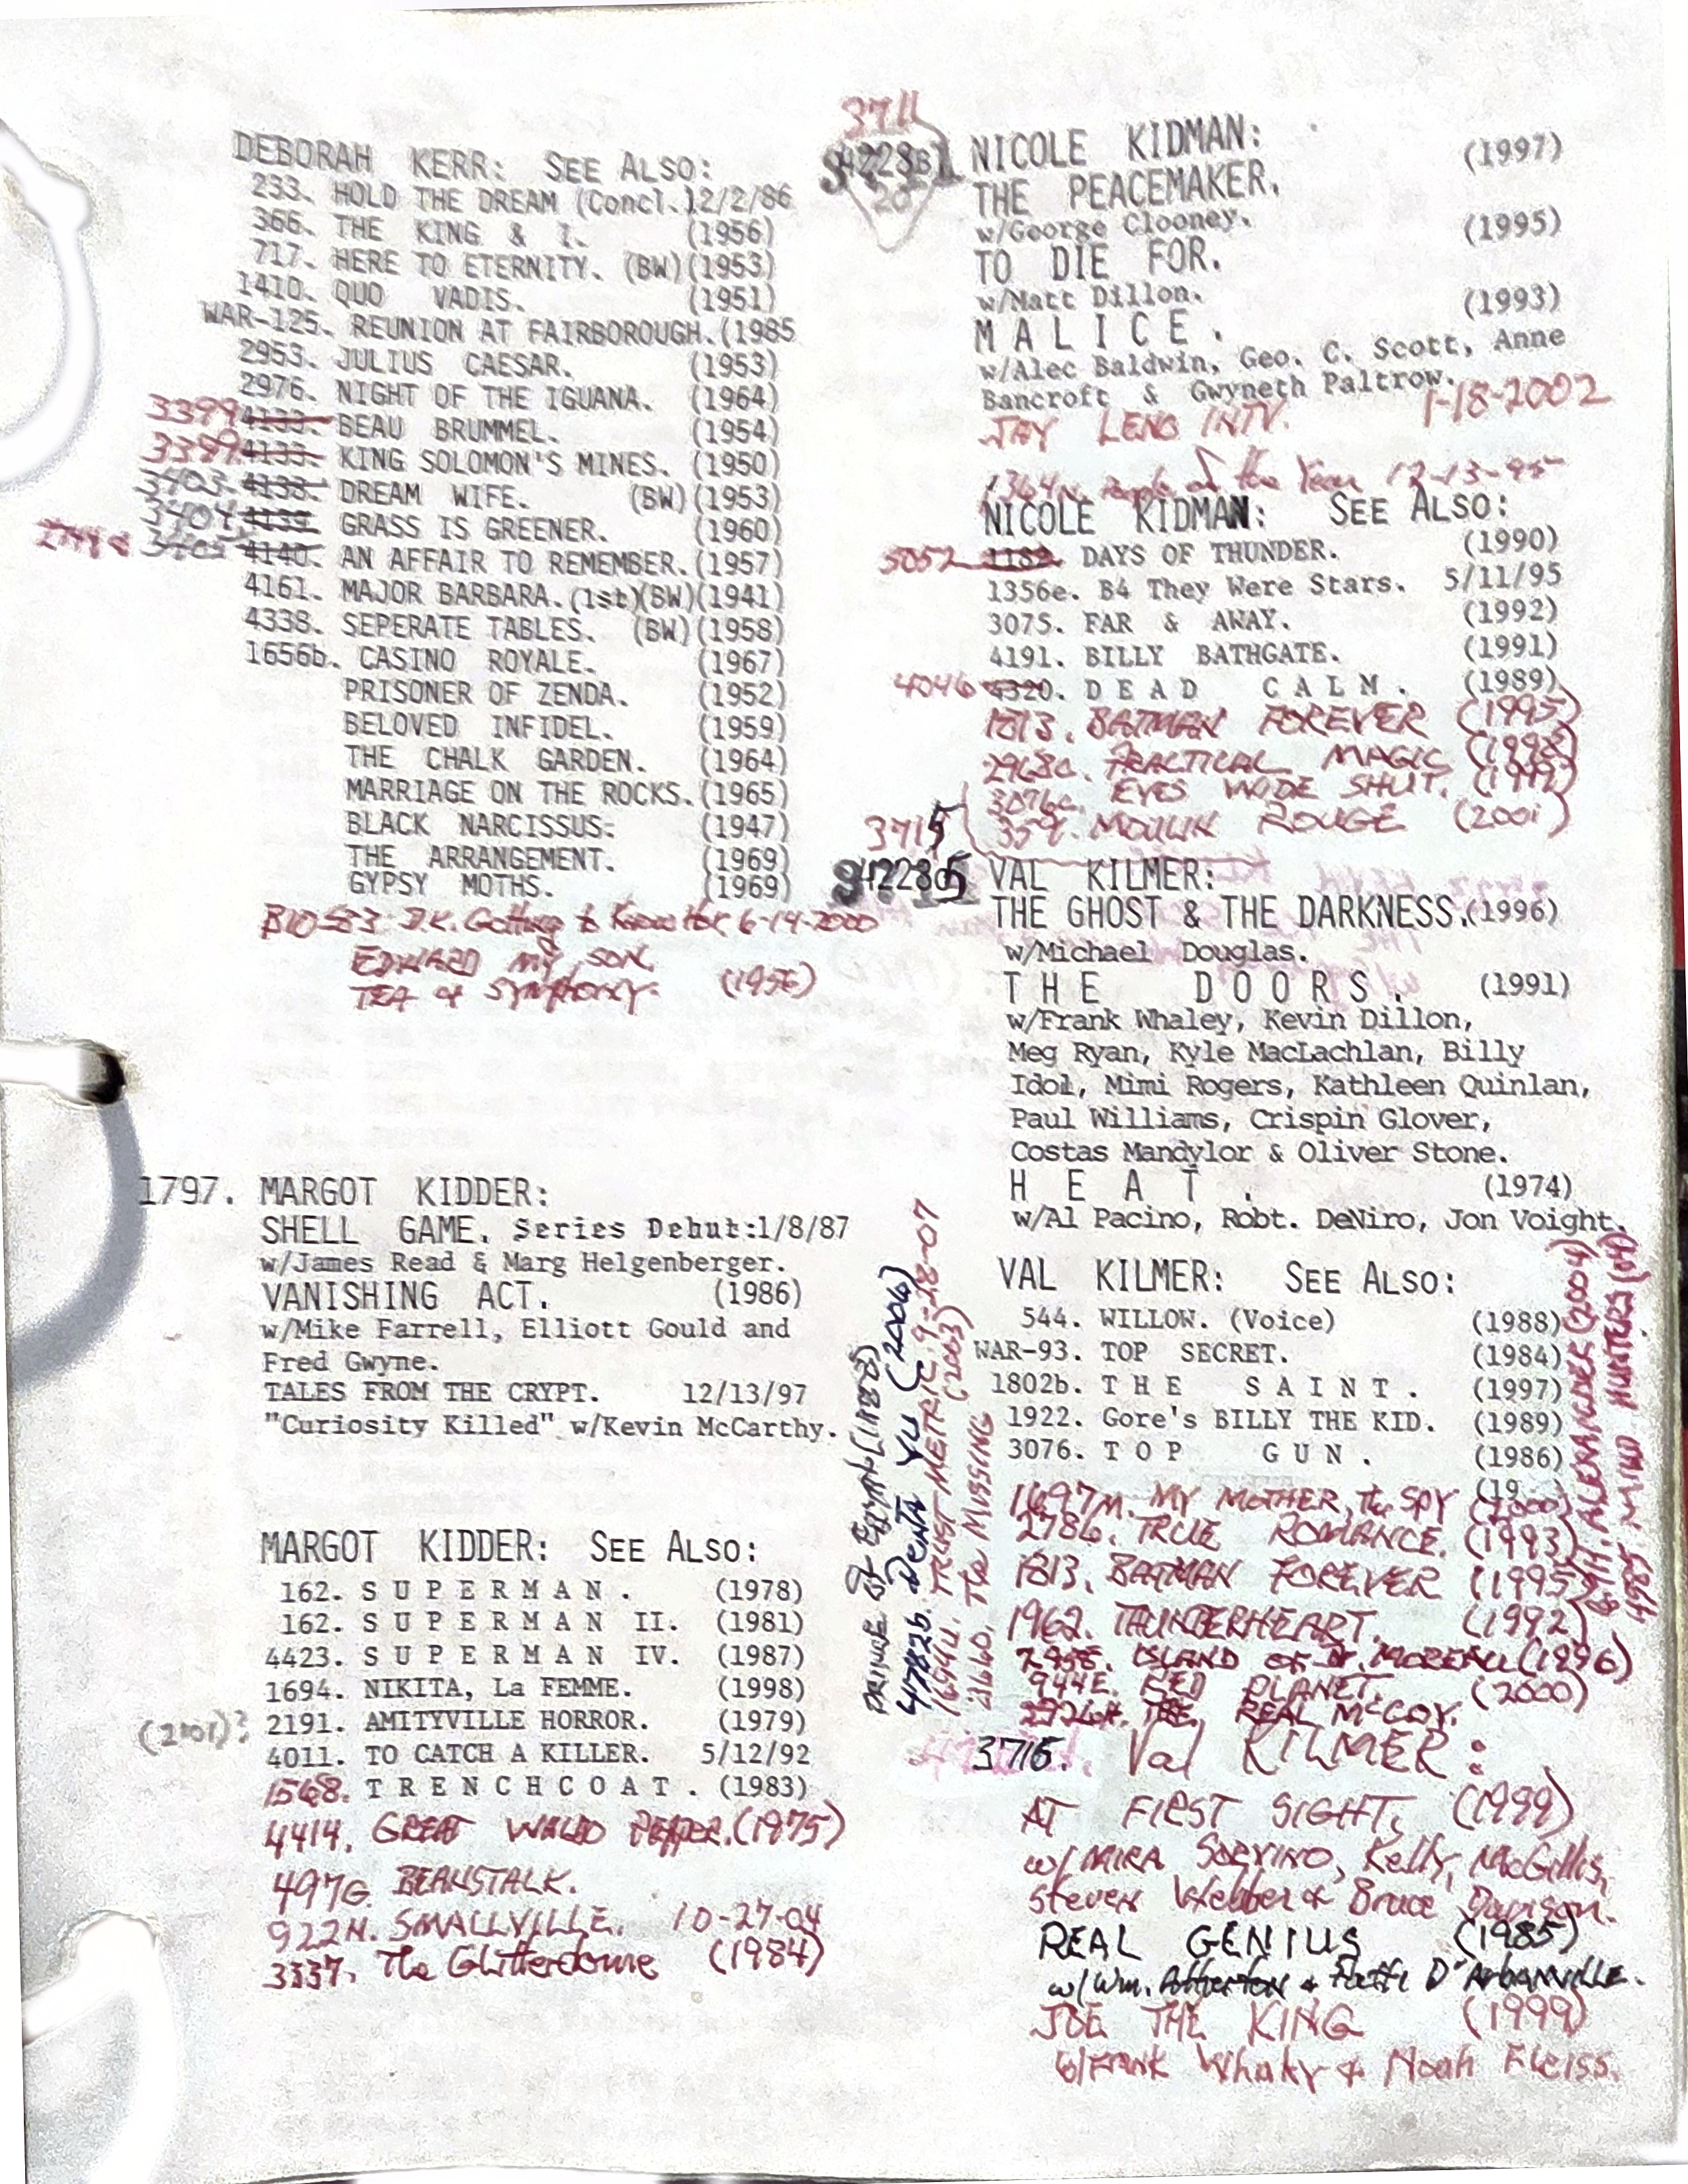 DEBORAH KERR: SEE ALSO:
233. HOLD THE DREAM (Concl.12/2/86
366. THE KING & I. (1956)
717. HERE TO ETERNITY. (BW)(1953)
1410. QUO VADIS. (1951)
WAR-125. REUNION AT FAIRBOROUGH.(1985
2953. JULIUS CAESAR. (1953)
2976. NIGHT OF THE IGUANA. (1964)
3399 4133. BEAU BRUMMEL. (1954)
3399. 4133. KING SOLOMON'S MINES. (1950)
3403. 4138. DREAM WIFE. (BW)(1953)
3404. 4139. GRASS IS GREENER. (1960)
3405 4140. AN AFFAIR TO REMEMBER.(1957)
4161. MAJOR BARBARA.(1st)(BW)(1941)
4338. SEPERATE TABLES. (BW)(1958)
1656b. CASINO ROYALE. (1967)
PRISONER OF ZENDA. (1952)
BELOVED INFIDEL. (1959)
THE CHALK GARDEN. (1964)
MARRIAGE ON THE ROCKS.(1965)
BLACK NARCISSUS. (1947)
THE ARRANGEMENT. (1969)
GYPSY MOTHS. (1969)
BIO-583: D.K. Getting to Know Her 6-14-2000
EDWARD MY SON.
TEA & SYMPHONY. (1956)
1797. MARGOT KIDDER:
SHELL GAME. Series Debut:1/8/87
w/James Read & Marg Helgenberger.
VANISHING ACT. (1986)
w/Mike Farrell, Elliott Gould and
Fred Gwyne.
TALES FROM THE CRYPT. 12/13/97
"Curiosity Killed" w/Kevin McCarthy.
MARGOT KIDDER: SEE ALSO:
162. S U P E R M A N . (1978)
162. S U P E R M A N II. (1981)
4423. S U P E R M A N IV. (1987)
1694. NIKITA, La FEMME. (1998)
(2101)? 2191. AMITYVILLE HORROR. (1979)
4011. TO CATCH A KILLER. 5/12/92
1568. T R E N C H C O A T . (1983)
4414. GREAT WALDO PEPPER.(1975)
497G. BEANSTALK.
922H. SMALLVILLE. 10-27-04
3337. The Glitterdome (1984)
3711
NICOLE KIDMAN:
THE PEACEMAKER. (1997)
w/George Clooney.
TO DIE FOR. (1995)
w/Matt Dillon.
M A L I C E . (1993)
w/Alec Baldwin, Geo. C. Scott, Anne
Bancroft & Gwyneth Paltrow.
JAY LENO INTV. 1-18-2002
1364n. People of the Year 12-13-95
NICOLE KIDMAN: SEE ALSO:
5052 1182. DAYS OF THUNDER. (1990)
1356e. B4 They Were Stars. 5/11/95
3075. FAR & AWAY. (1992)
4191. BILLY BATHGATE. (1991)
4046 4320. D E A D C A L M . (1989)
1813. BATMAN FOREVER (1995)
2968a. PRACTICAL MAGIC (1998)
3076c. EYES WIDE SHUT. (1999)
359. MOULIN ROUGE (2001)
3715
VAL KILMER:
THE GHOST & THE DARKNESS.(1996)
w/Michael Douglas.
T H E D O O R S . (1991)
w/Frank Whaley, Kevin Dillon,
Meg Ryan, Kyle MacLachlan, Billy
Idol, Mimi Rogers, Kathleen Quinlan,
Paul Williams, Crispin Glover,
Costas Mandylor & Oliver Stone.
H E A T . (1974)
w/Al Pacino, Robt. DeNiro, Jon Voight.
VAL KILMER: SEE ALSO:
544. WILLOW. (Voice) (1988)
WAR-93. TOP SECRET. (1984)
1802b. T H E S A I N T . (1997)
1922. Gore's BILLY THE KID. (1989)
3076. T O P G U N . (1986)
(19
1697m. MY MOTHER, the SPY (2000)
2786. TRUE ROMANCE. (1993)
1813. BATMAN FOREVER (1995)
1962. THUNDERHEART. (1992)
2958. ISLAND OF Dr. MOREAU (1996)
944E. RED PLANET. (2000)
2726H. THE REAL McCOY.
PRINCE OF Egypt (1998)
4782b. DENTA YU (2006)
1694u. TRUST METRIC. 9-28-07
2166o. The MISSING (2003)
ALEXANDER (2004)
4985. MIND HUNTERS (04)
3716. Val KILMER:
AT FIRST SIGHT. (1999)
w/MIRA SORVINO, Kelly McGillis,
Steven Webber & Bruce Davison.
REAL GENIUS (1985)
w/Wm. Atherton & Patti D'ArbANVILLE.
JOE THE KING (1999)
w/Frank Whaley & Noah Fleiss.